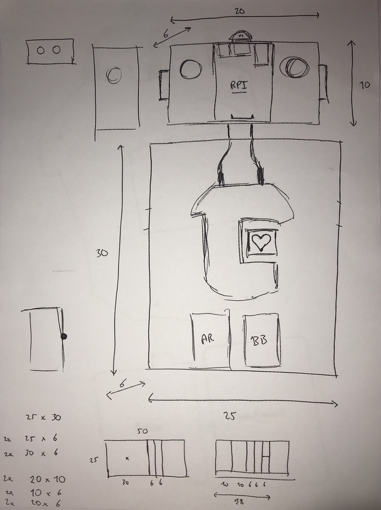 20
6
10
RPI
30
AR
BB
6
25
25 x 30
2x 25 x 6
2x 30 x 6
2x 20 x 10
2x 10 x 6
2x 20 x 6
50
25
x
30 6 6
10 20 6 6 6